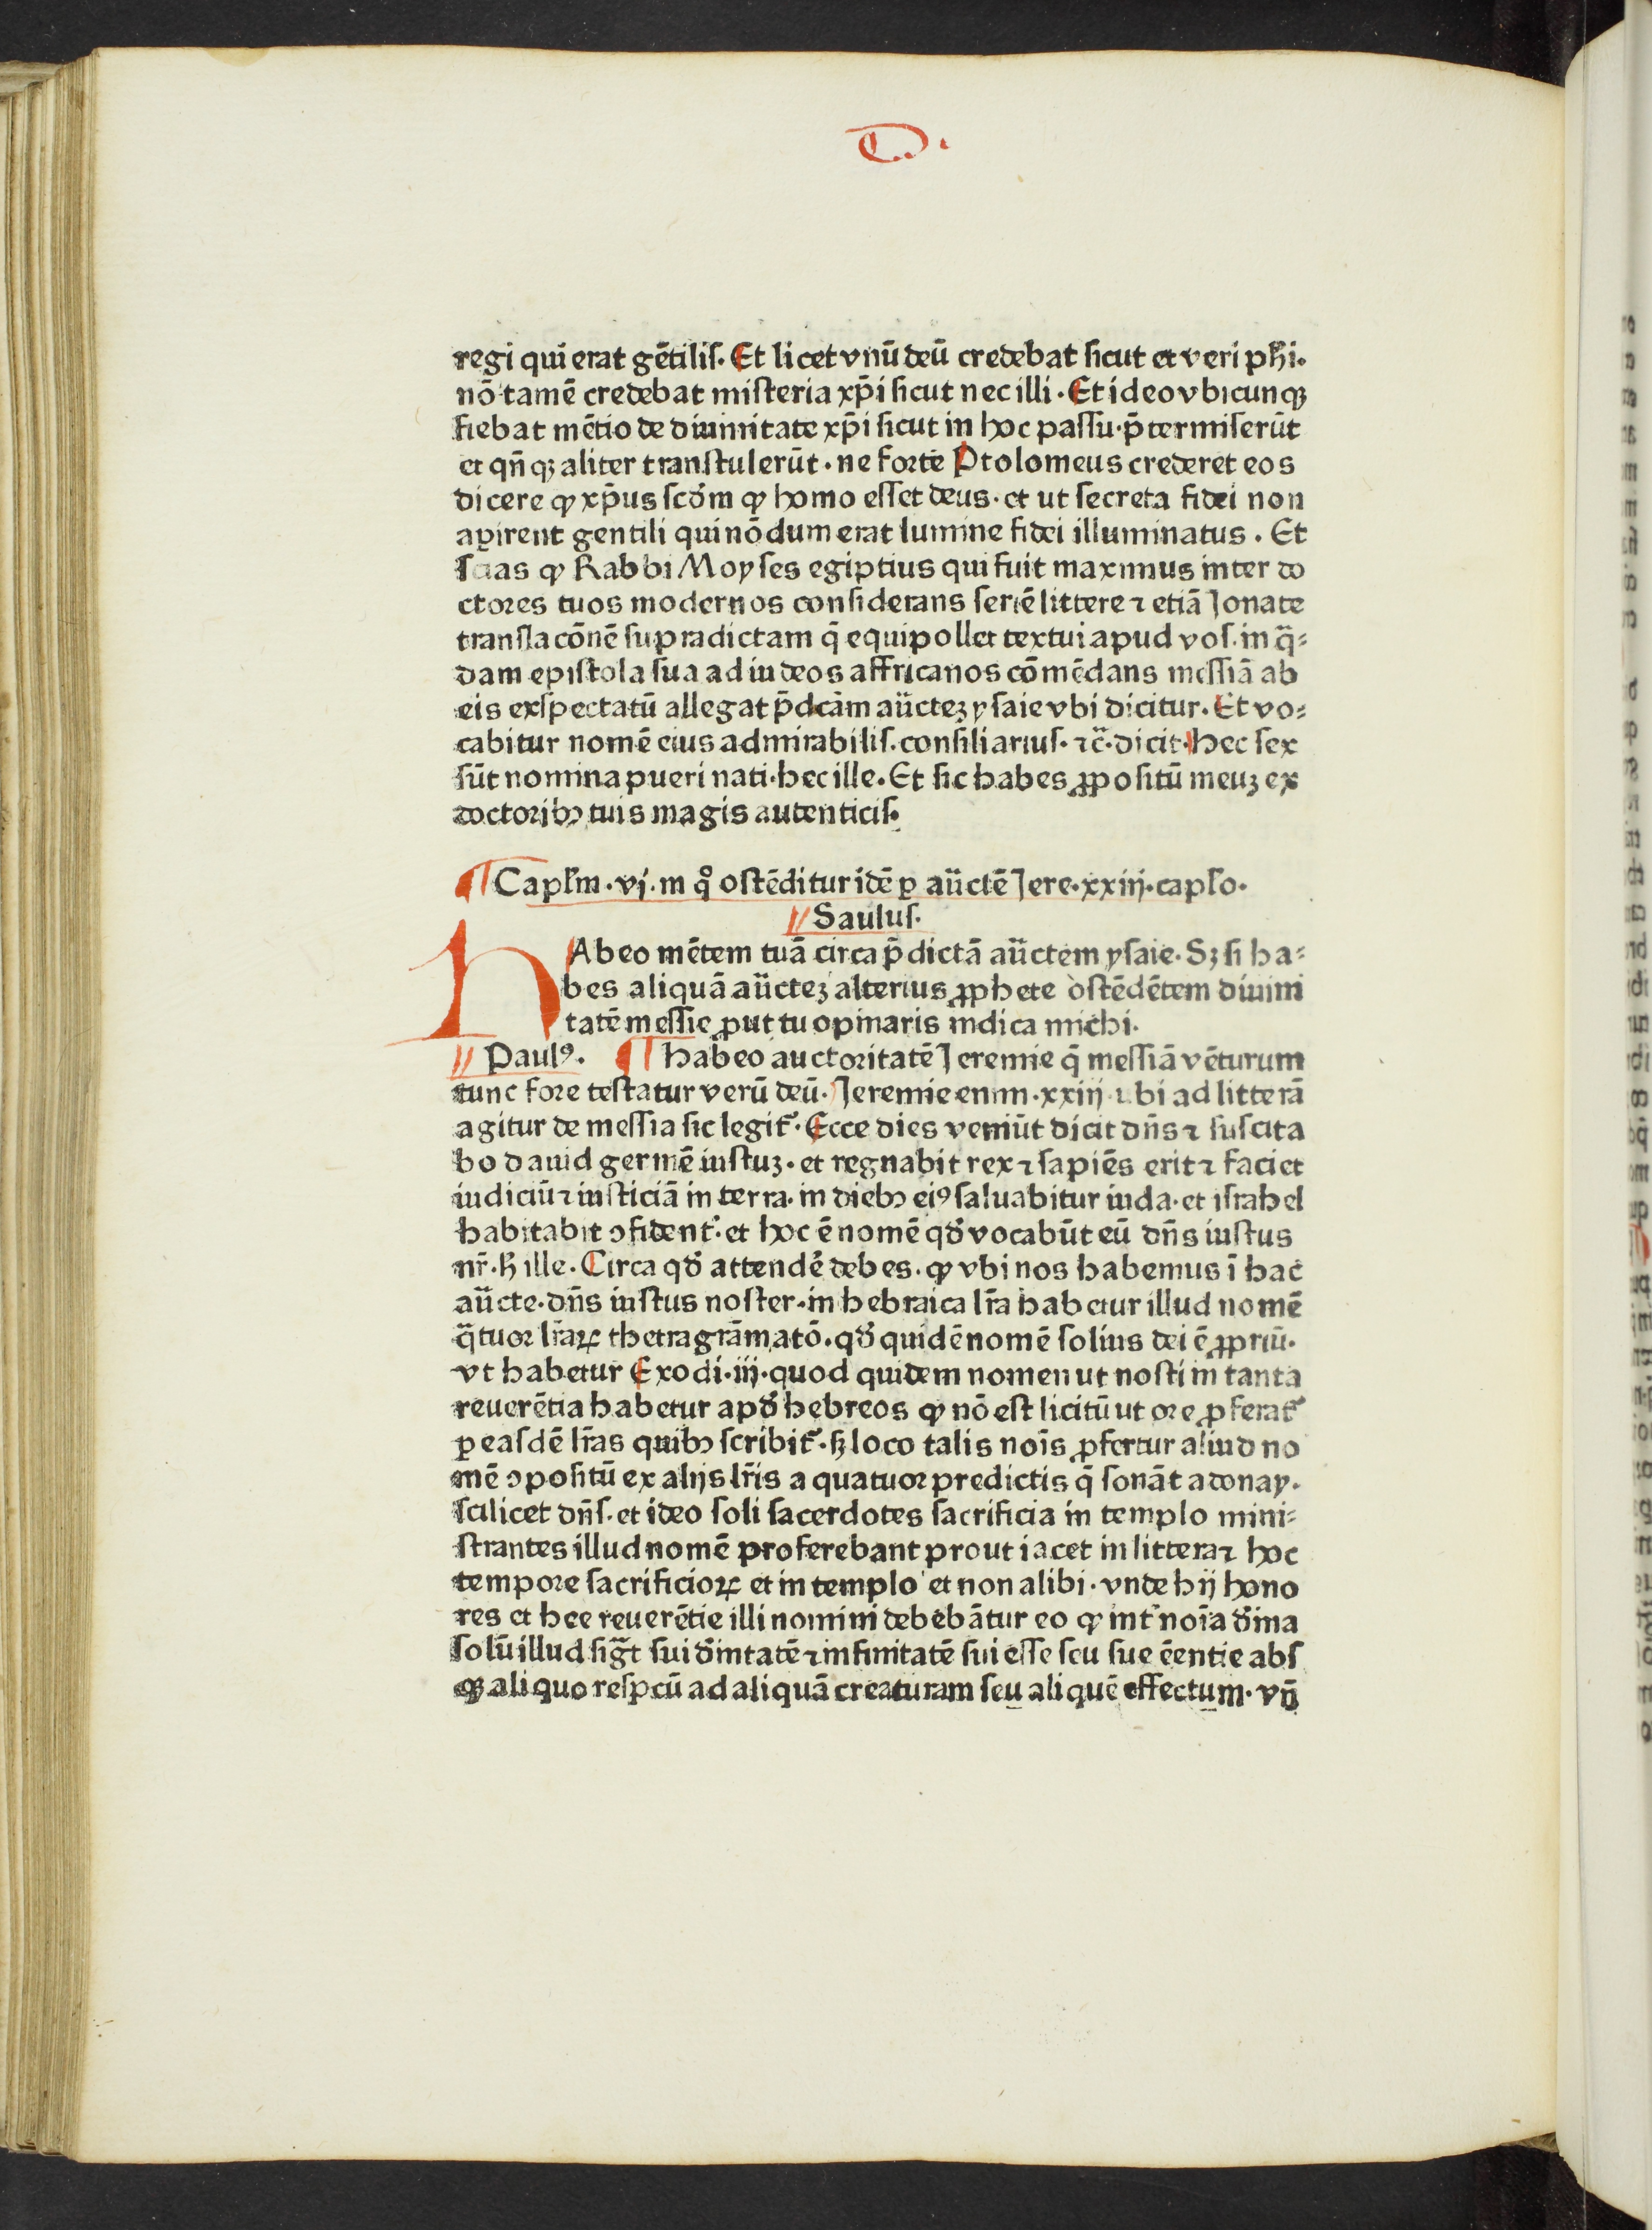 regi qui erat gētiliſ. Et licet vnū deū credebat ſicut et veri phi.
nō tamē credebat miſteria xp̄i ſicut nec illi. Et ideo vbicunqꝫ
fiebat mētio de diuinitate xp̄i ſicut in hoc paſſu. p̄termiſerūt
et qn̄qꝫ aliter tranſtulerūt. ne forte Ptolomeus crederet eos
dicere ꝙ xp̄us ſcd̓m ꝙ homo eſſet deus. et ut ſecreta fidei non
aꝑirent gentili qui nōdum erat lumine fidei illuminatus. Et
ſcias ꝙ Rabbi Moyſes egiptius qui fuit maximus inter do
ctores tuos modernos conſiderans ſeriē littere ⁊ etiā Jonate
tranſlacōnē ſupradictam q̄ equipollet textui apud voſ. in q̄⸗
dam epiſtola ſua ad iudeos affricanos cōmēdans meſſiā ab
eis exſpectatū allegat p̄dcām aūctez yſaie vbi dicitur. Et vo⸗
cabitur nomē eius admirabiliſ. conſiliariuſ. ⁊c̄. dicit. Hec ſex
ſūt nomina pueri nati. hec ille. Et ſic habes ꝓpoſitū meuꝫ ex
doctoribꝫ tuis magis autenticiſ.
¶ Capl̓m .vj. in qͦ oſtēditur idē ꝑ aūctē Jere. xxiij. capl̓o.
Sauluſ.
HAbeo mētem tuā circa p̄dictā aūctem yſaie. Sꝫ ſi ha⸗
bes aliquā aūctez alterius ꝓphete oſtēdētem diuini
tatē meſſie ꝓut tu opinaris indica michi.
Paulꝰ. ¶ habeo auctoritatē Jeremie q̄ meſſiā vēturum
tunc fore teſtatur verū deū. Jeremie enim .xxiij. vbi ad litterā
agitur de meſſia ſic legit᷑. Ecce dies veniūt dicit dn̄s ⁊ ſuſcita
bo dauid germē iuſtuꝫ. et regnabit rex ⁊ ſapiēs erit ⁊ faciet
iudiciū ⁊ iuſticiā in terra. in diebꝫ eiꝰ ſaluabitur iuda. et iſrahel
habitabit ꝯfident᷑. et hoc ē nomē qd̓ vocabūt eū dn̄s iuſtus
nr̄. h̓ ille. Circa qd̓ attendē debes. ꝙ vbi nos habemus ī hac
aūcte. dn̄s iuſtus noſter. in hebraica lr̄a habetur illud nomē
q̄tuor lr̄aꝝ thetragrāmatō. qd̓ quidē nomē ſolius dei ē ꝓpriū.
vt habetur Exodi .iij. quod quidem nomen ut noſti in tanta
reuerētia habetur apd̓ hebreos ꝙ nō eſt licitū ut ore ꝓferat᷑
ꝑ eaſdē lr̄as quibꝫ ſcribit᷑. ſꝫ loco talis nōis ꝓfertur aliud no
mē ꝯpoſitū ex alijs lr̄is a quatuor predictis q̄ ſonāt adonay.
ſcilicet dn̄ſ. et ideo ſoli ſacerdotes ſacrificia in templo mini⸗
ſtrantes illud nomē proferebant prout iacet in littera ⁊ hoc
tempore ſacrificioꝝ et in templo et non alibi. vnde hij hono
res et hee reuerētie illi nomini debebātur eo ꝙ int᷑ nōia d̓ina
ſolū illud ſig̅t ſui d̓initatē ⁊ infinitatē ſui eſſe ſeu ſue ēentie abſ
qꝫ aliquo reſpcū ad aliquā creaturam ſeu aliquē effectum. vn̄